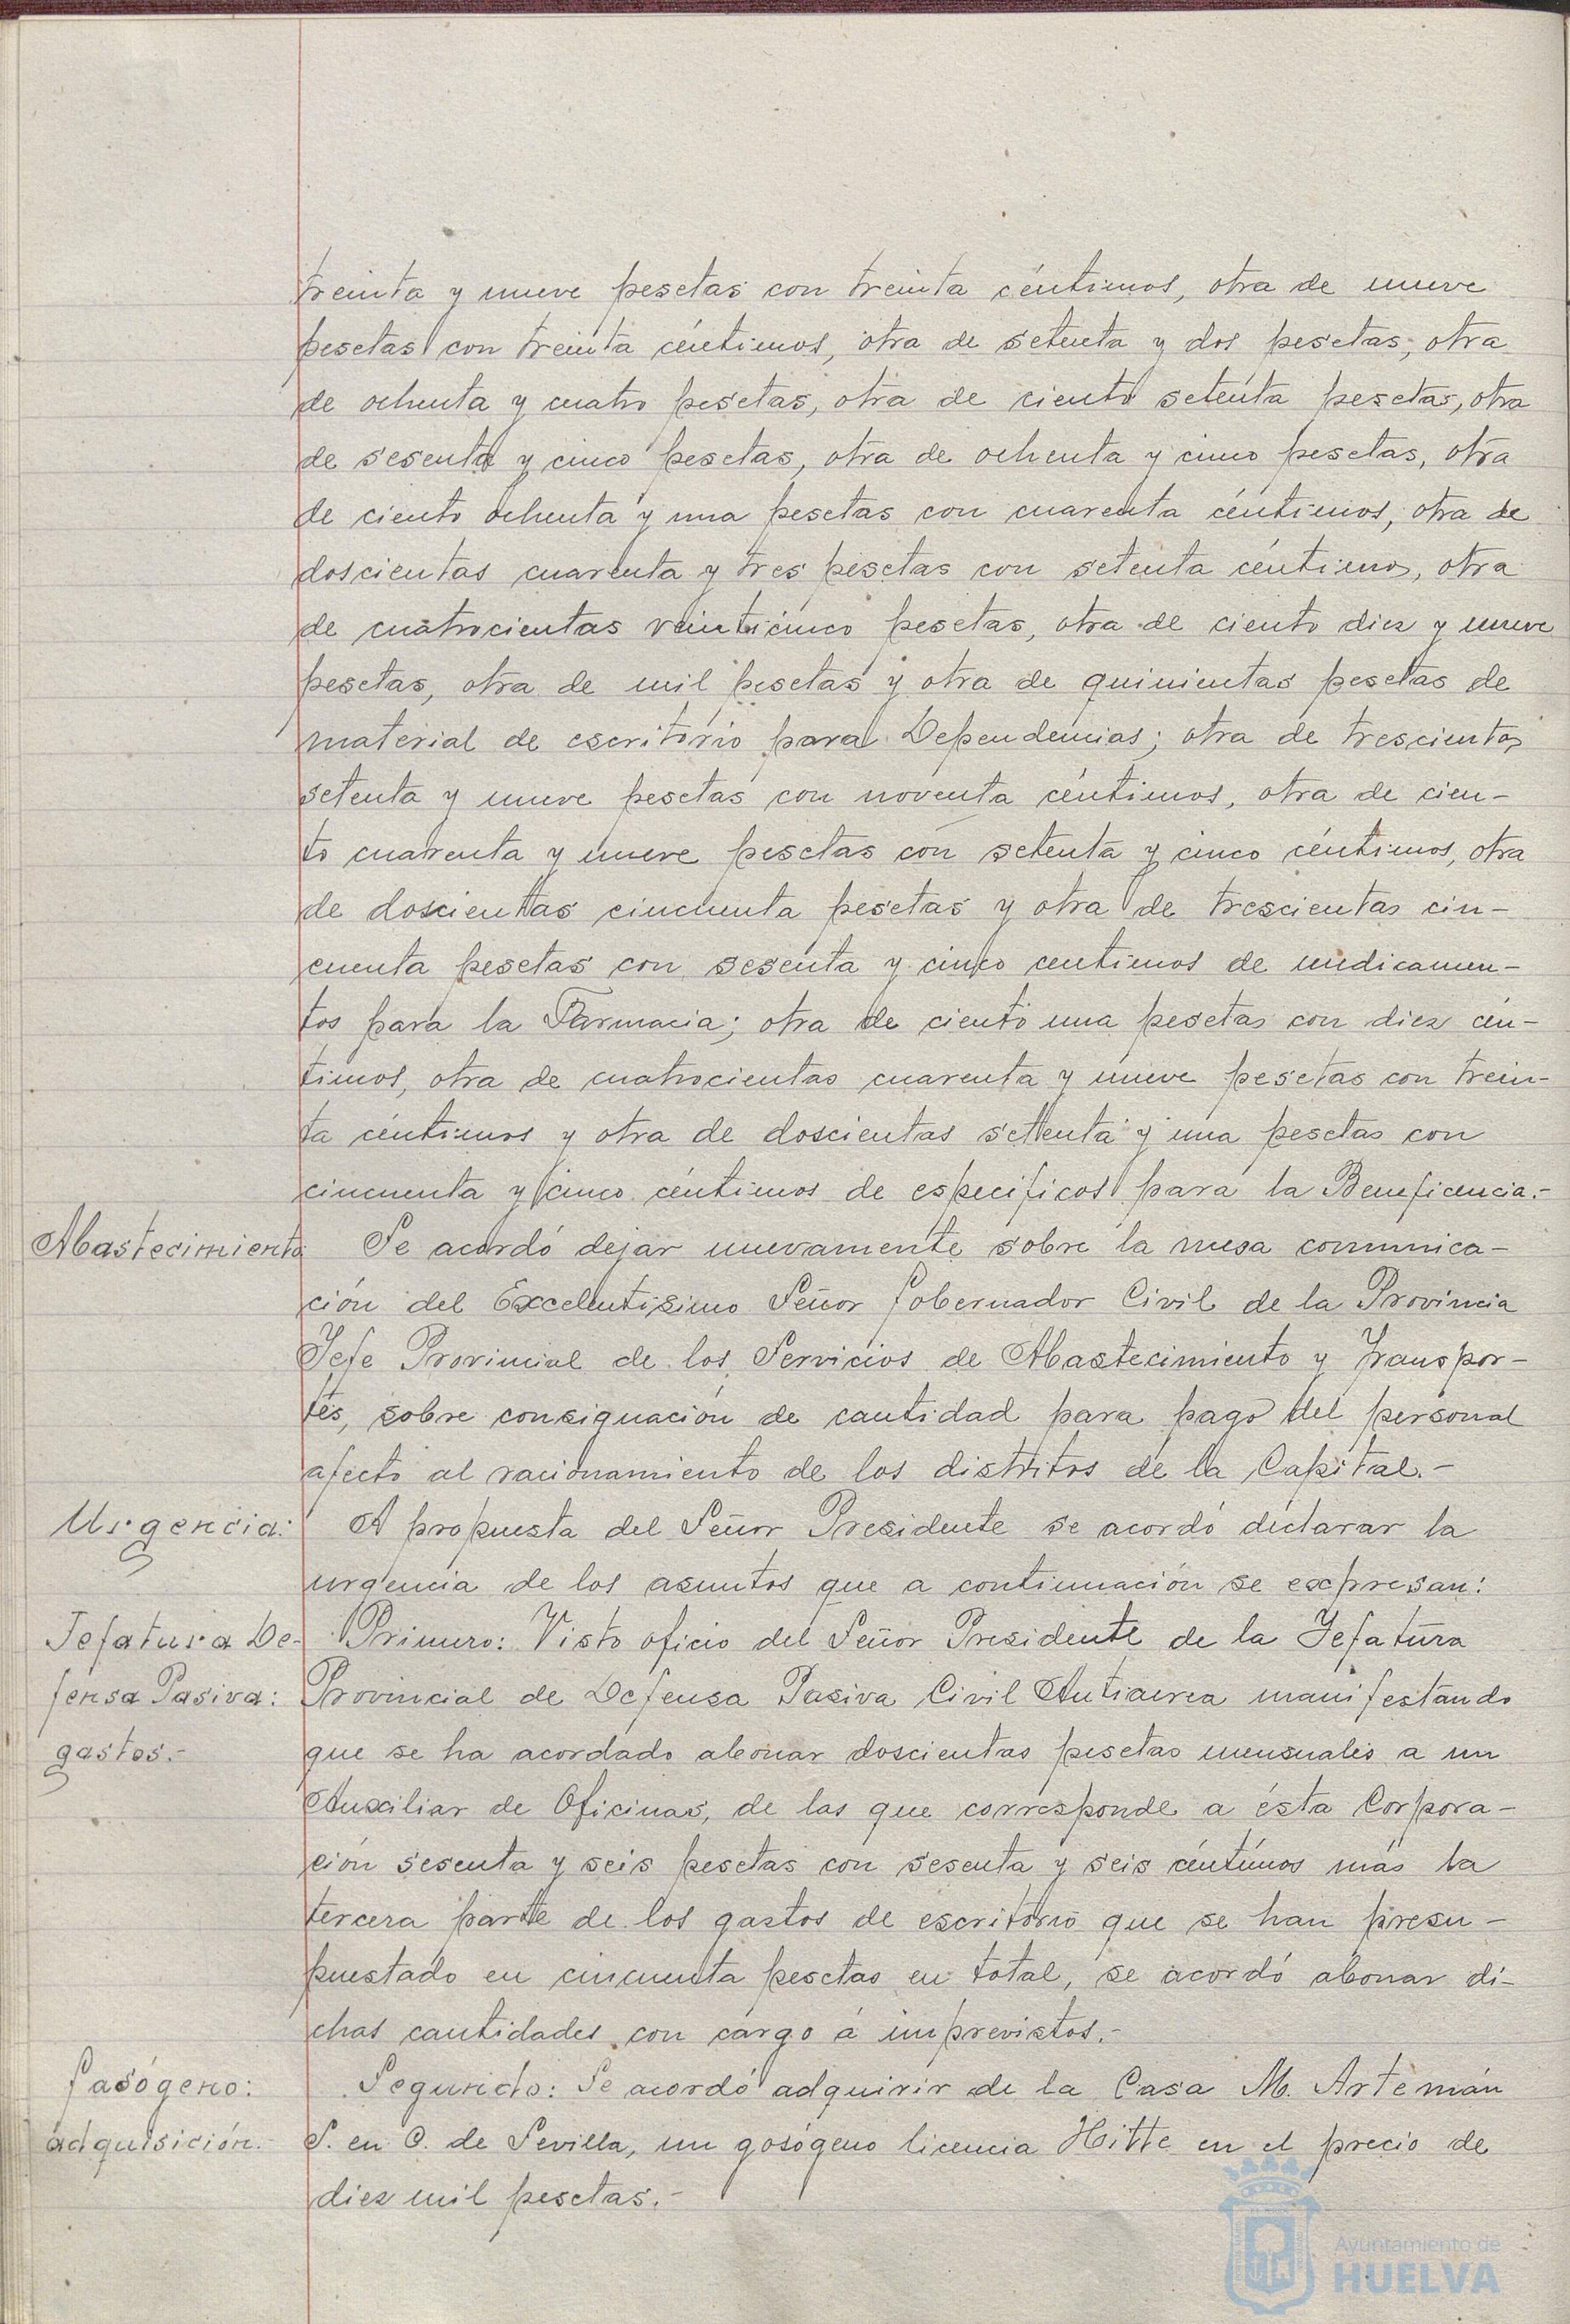 treinta y nueve pesetas con treinta céntimos, otra de nueve
pesetas con treinta céntimos, otra de setenta y dos pesetas, otra
de ochenta y cuatro pesetas, otra de ciento setenta pesetas, otra
de sesenta y cinco pesetas, otra de ochenta y cinco pesetas, otra
de ciento ochenta y una pesetas con cuarenta céntimos, otra de
doscientas cuarenta y tres pesetas con setenta céntimos, otra
de cuatrocientas veinticinco pesetas, otra de ciento diez y nueve
pesetas, otra de mil pesetas y otra de quinientas pesetas de
material de escritorio para Dependencias; otra de trescientas
setenta y nueve pesetas con noventa céntimos, otra de cien-
to cuarenta y nueve pesetas con setenta y cinco céntimos, otra
de doscientas cincuenta pesetas y otra de trescientas cin-
cuenta pesetas con sesenta y cinco centimos de medicamen-
tos para la Farmacia; otra de ciento una pesetas con diez cén-
timos, otra de cuatrocientas cuarenta y nueve pesetas con trein-
ta céntimos y otra de doscientas setenta y una pesetas con
cincuenta y cinco céntimos de específicos para la Beneficencia.-
Abastecimiento Se acordó dejar nuevamente sobre la mesa comunica-
ción del Excelentísimo Señor Gobernador Civil de la Provincia
Jefe Provincial de los Servicios de Abastecimiento y Transpor-
tes, sobre consignación de cantidad para pago del personal
afecto al racionamiento de los distritos de la Capital.-
Urgencia: A propuesta del Señor Presidente se acordó declarar la
urgencia de los asuntos que a continuación se expresan:
Jefatura De- Primero: Visto oficio del Señor Presidente de la Jefatura
fensa Pasiva: Provincial de Defensa Pasiva Civil Antiaerea manifestando
gastos.- que se ha acordado abonar doscientas pesetas mensuales a un
Auxiliar de Oficinas, de las que corresponde a ésta Corpora-
ción sesenta y seis pesetas con sesenta y seis céntimos más la
tercera parte de los gastos de escritorio que se han presu-
puestado en cincuenta pesetas en total, se acordó abonar di-
chas cantidades con cargo á imprevistos.-
Gasógeno: Segundo: Se acordó adquirir de la Casa M. Artemán
adquisición.- S. en C. de Sevilla, un gosógeno licencia Hitte en el precio de
diez mil pesetas.-
Ayuntamiento de
HUELVA